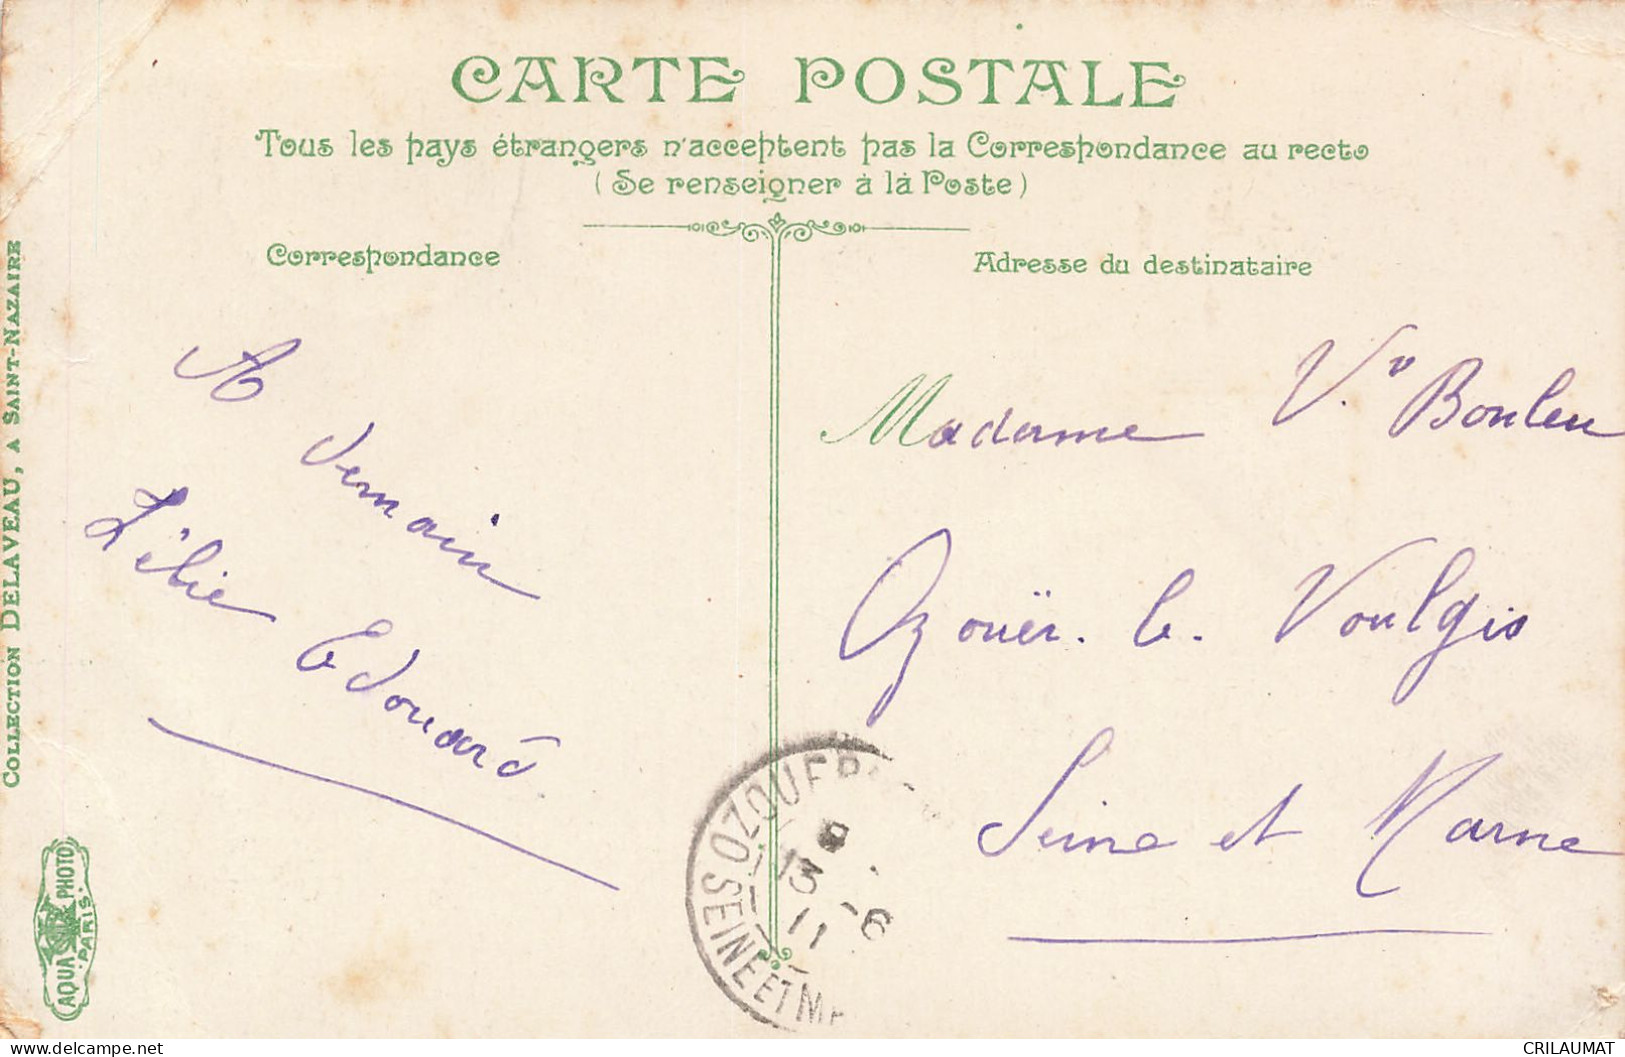 CARTE POSTALE
Tous les pays étrangers n'acceptent pas la Correspondance au recto
(Se renseigner à là Poste)
Correspondance
Adresse du destinataire
A
demain
Edouard
Madame Vᵛ Bouleu
Ozouër. le. Voulgis
Seine et Marne
COLLECTION DELAVEAU, A SAINT-NAZAIRE
AQUA PHOTO
PARIS
OZOUER
13 -6
11
SEINE ET M
delcampe.net
CRILAUMAT